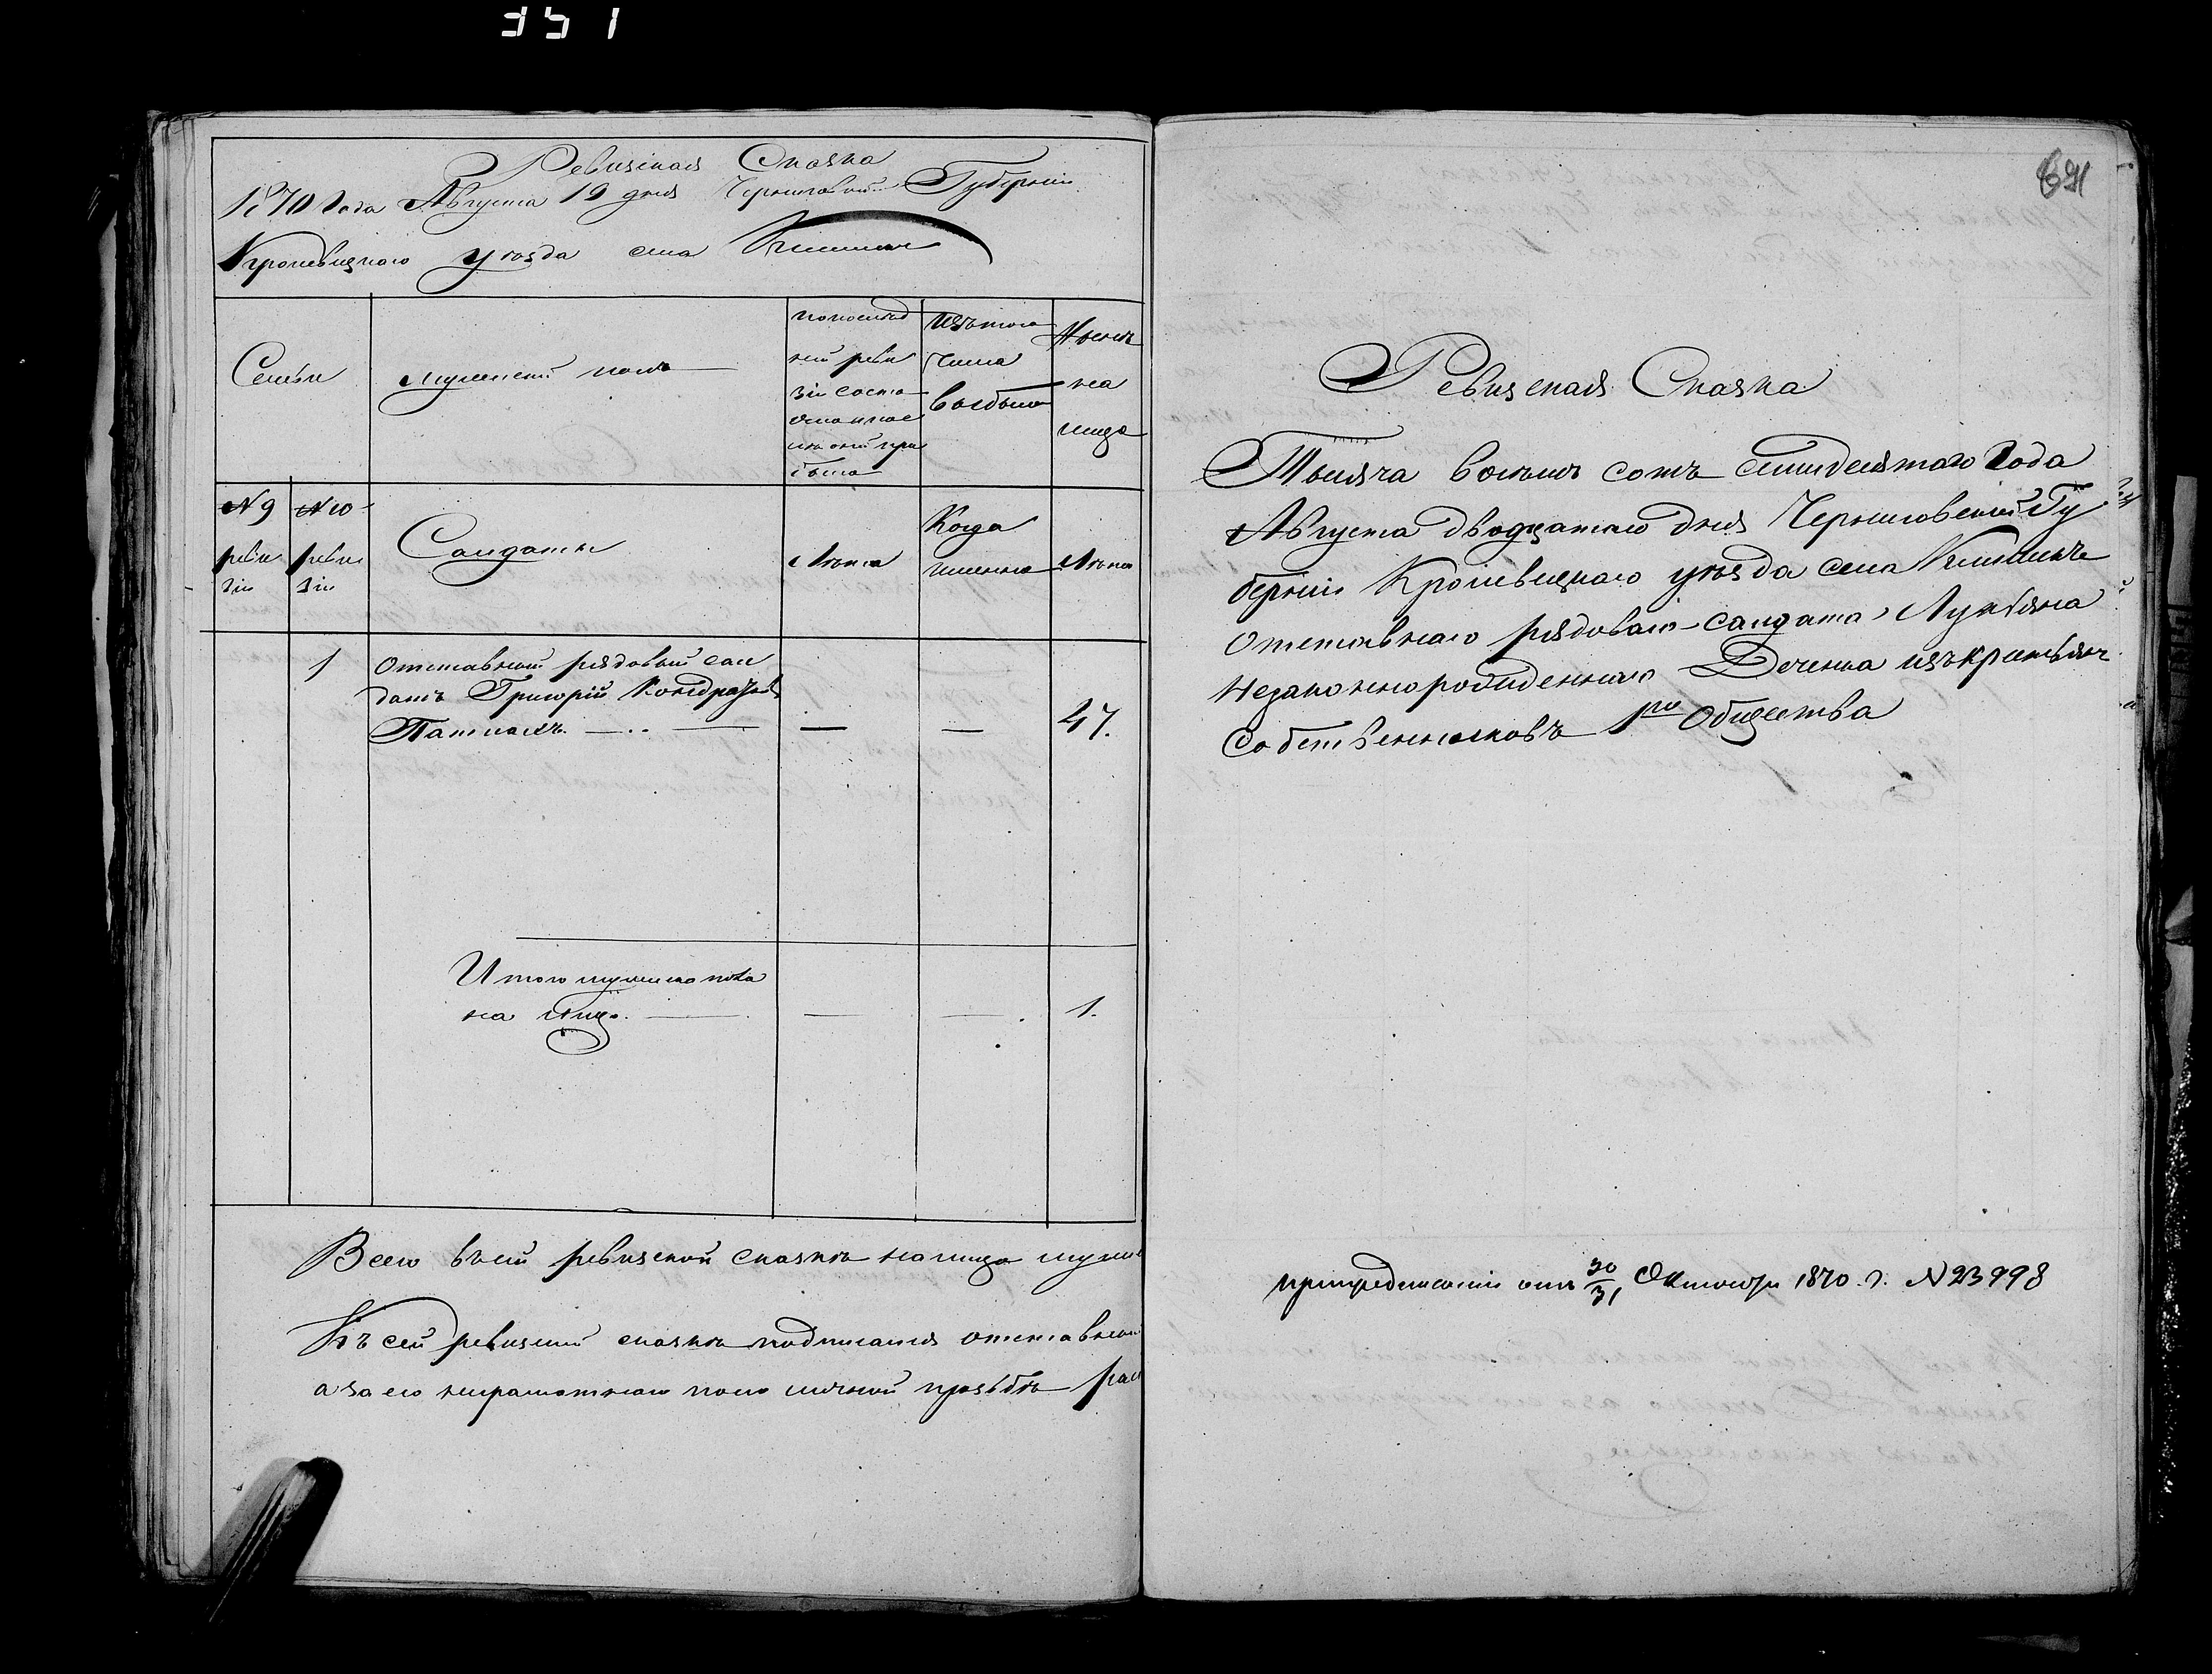 351
Ревизская Сказка
1870 Года Августа 19 дня Черниговской Губерніи
Кролевецкаго уѣзда села
Семьи
мужескій полъ
попослѣд
ней реви
зіи состо
яло и пос
лѣ оной при
было
Изътого
числа
выбыло
Нынѣ
на
лицо
№ 9
реви
зіи
№ 10
реви
зіи
Солдаты
Лѣта
Когда
именно
Лѣта
1
Отставный рядовый сол
датъ Григорій Кондратовъ
47.
Итого мужеско пола
на лицо.
1.
Всего въсей ревизской сказкѣ налицо муже
Къ сей ревизской сказкѣ подписался отставной
а за его неграмотнаго по его личной прозьбѣ
691
Ревизская Сказка
Тысяча восемь сотъ семидесятаго Года
Августа двадцатаго дня Черниговской Гу
берніи Кролевецкаго уѣзда села
Отставнаго рядоваго солдата Лукьяна
Незаконнорожденнаго Доченка изъ крестьянъ
Собственниковъ 1го Общества
припредписаніи отъ 30/31 Октября 1870 г. № 23998